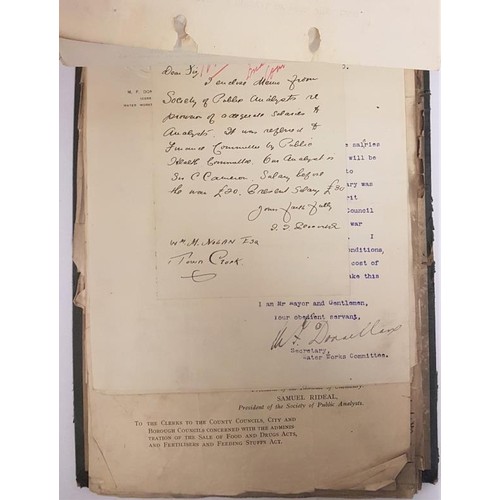 Dear Sir,
I enclose Memo from
Society of Public Analysts re
provision of adequate salaries to
Analysts. It was referred to
Finance Committee by Public
Health Committee. Our Analyst is
Sir C Cameron. Salary before
the war £20. Present Salary £30
Yours faithfully
Wm. M. Nolan Esq
Town Clerk
W. F. DON
WATER WORKS
e salries
will be
to
ary was
rit
Council
war
I
onditions,
cost of
ake this
I am Mr Mayor and Gentlemen,
Your obedient servant,
Secretary,
Water Works Committee.
SAMUEL RIDEAL,
President of the Society of Public Analysts.
TO THE CLERKS TO THE COUNTY COUNCILS, CITY AND
BOROUGH COUNCILS CONCERNED WITH THE ADMINIS
TRATION OF THE SALE OF FOOD AND DRUGS ACTS,
AND FERTILISERS AND FEEDING STUFFS ACT.